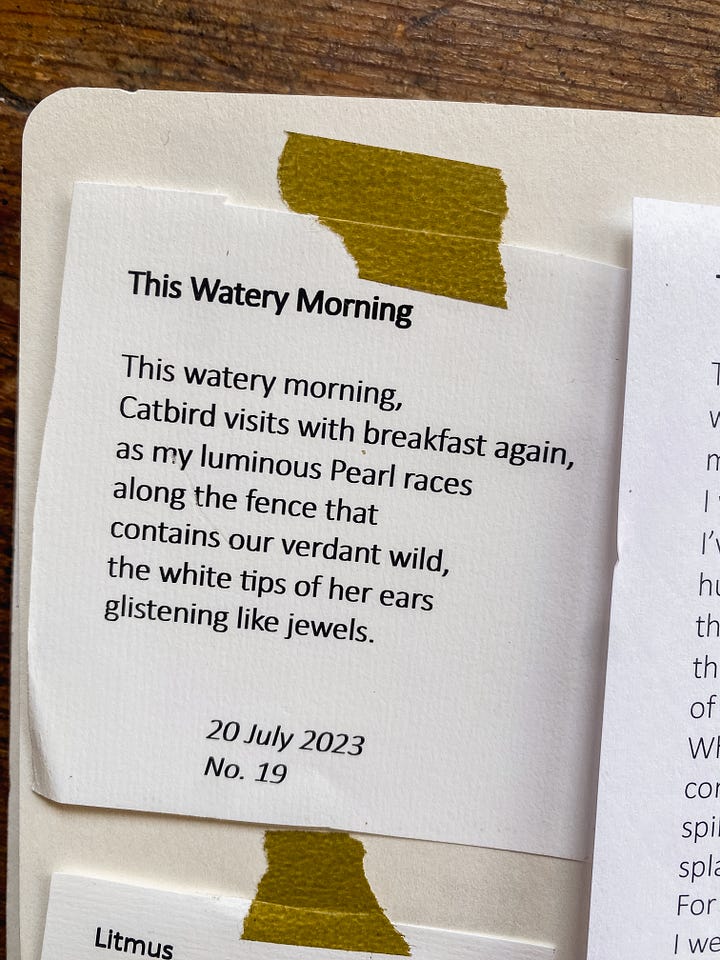 This Watery Morning
This watery morning,
Catbird visits with breakfast again,
as my luminous Pearl races
along the fence that
contains our verdant wild,
the white tips of her ears
glistening like jewels.
20 July 2023
No. 19
Litmus
I
I've
of
For
I we